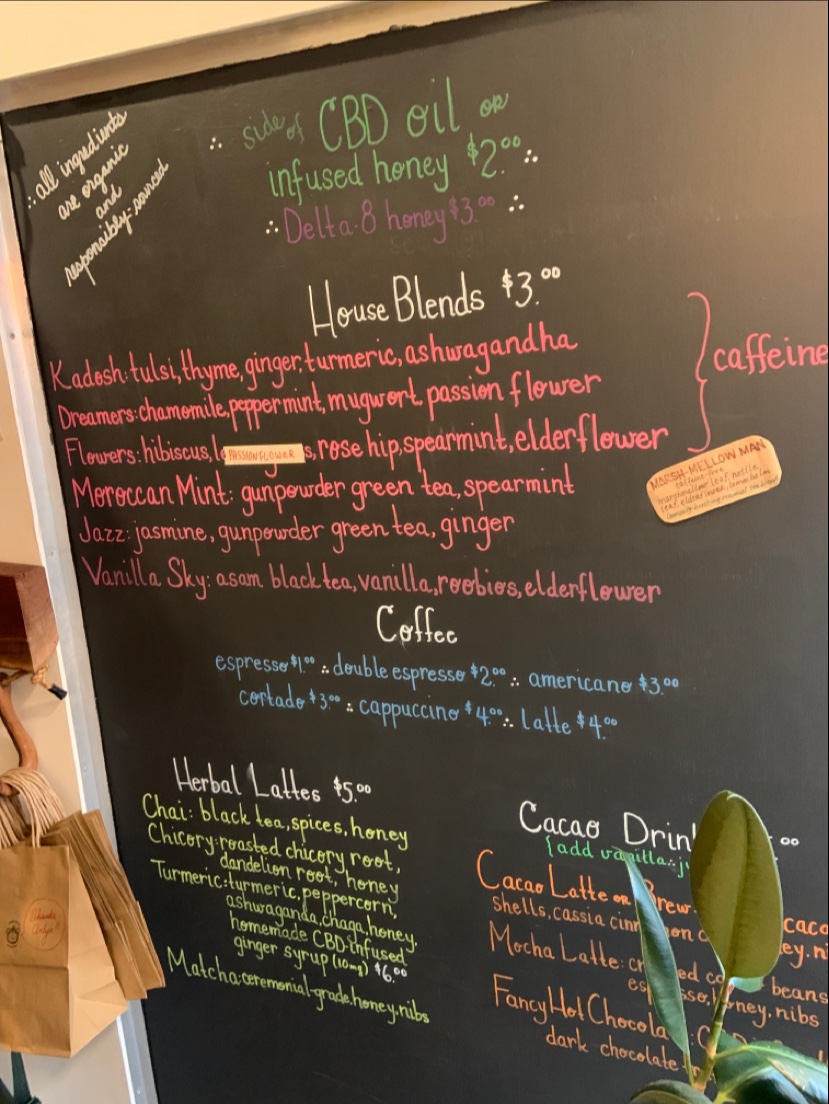 ∴ all ingredients
are organic
and
responsibly-sourced
∴ side of CBD oil or
infused honey $2.00 ∴
∴ Delta-8 honey $3.00 ∴
House Blends $3.00
Kadosh: tulsi, thyme, ginger, turmeric, ashwagandha
Dreamers: chamomile, peppermint, mugwort, passion flower
Flowers: hibiscus, PASSIONFLOWER rose hip, spearmint, elderflower
caffeine
Moroccan Mint: gunpowder green tea, spearmint
Jazz: jasmine, gunpowder green tea, ginger
Vanilla Sky: asam black tea, vanilla, roobios, elderflower
MARSH-MELLOW MAN
caffeine-free
marshmallow leaf, nettle
Coffee
espresso $1.00 ∴ double espresso $2.00 ∴ americano $3.00
cortado $3.00 ∴ cappuccino $4.00 ∴ latte $4.00
Herbal Lattes $5.00
Chai: black tea, spices, honey
Chicory: roasted chicory root,
dandelion root, honey
Turmeric: turmeric, peppercorn,
ashwaganda, chaga, honey,
homemade CBD-infused
ginger syrup (10mg) $6.00
Matcha: ceremonial-grade, honey, nibs
Cacao
{add vanilla
Cacao Latte or Brew
shells, cassia
Mocha Latte:
honey, nibs
Fancy Hot
dark chocolate
Thanks